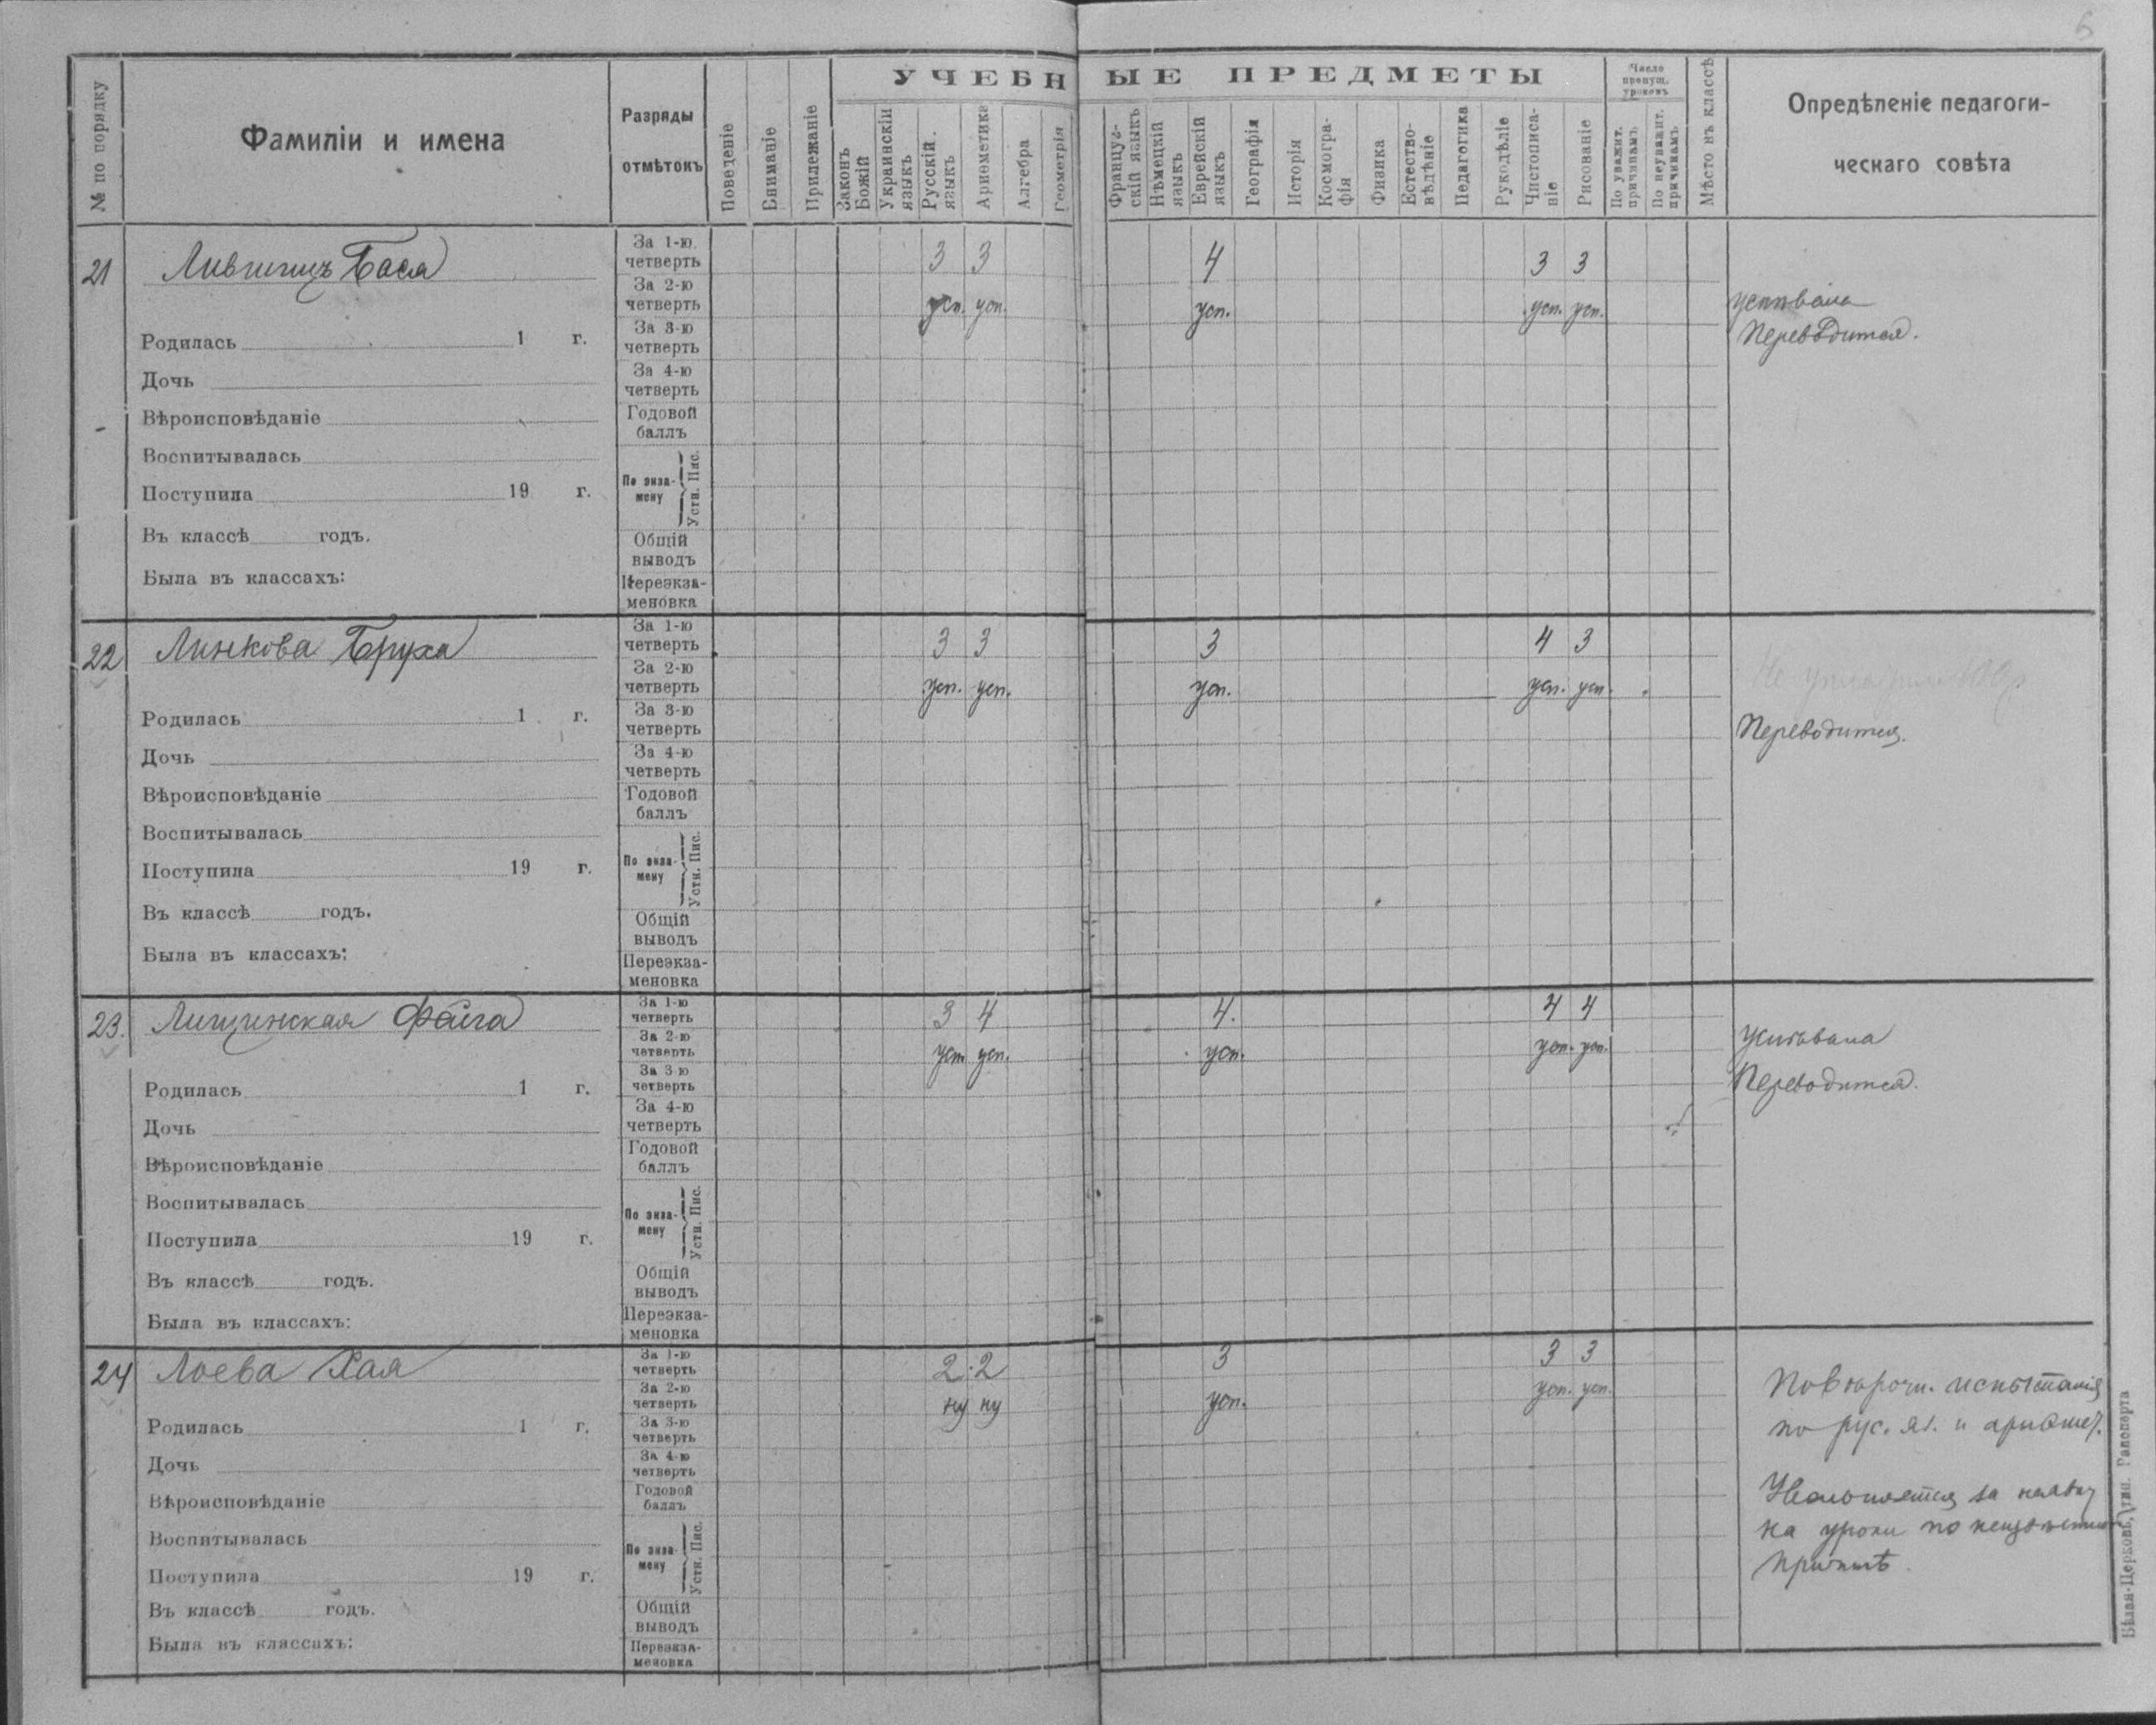 6
№ по порядку
Фамиліи и имена
Разряды
отмѣтокъ
Поведеніе
Вниманіе
Прилежаніе
УЧЕБНЫЕ ПРЕДМЕТЫ
Законъ
Божій
Украинскій
языкъ
Русскій
языкъ
Ариѳметика
Алгебра
Геометрія
Француз-
скій языкъ
Нѣмецкій
языкъ
Еврейскій
языкъ
Географія
Исторія
Космогра-
фія
Физика
Естество-
вѣдѣніе
Педагогика
Рукодѣліе
Чистописа-
ніе
Рисованіе
Число
пропущ.
уроковъ
По уважит.
причинамъ
По неуважит.
причинамъ
Мѣсто въ классѣ
Опредѣленіе педагоги-
ческаго совѣта
21 Лившицъ Бася
За 1-ю
четверть 3 3 4 3 3
За 2-ю
четверть усп. усп. усп. усп. усп.
успѣвала
Переводится.
За 3-ю
четверть
За 4-ю
четверть
Годовой
баллъ
По экза-
мену
Устн. Пис.
Общій
выводъ
Переэкза-
меновка
Родилась 1 г.
Дочь
Вѣроисповѣданіе
Воспитывалась
Поступила 19 г.
Въ классѣ годъ.
Была въ классахъ:
22 Линкова Бруха
За 1-ю
четверть 3 3 3 4 3
За 2-ю
четверть усп. усп. усп. усп. усп.
Переводится.
За 3-ю
четверть
За 4-ю
четверть
Годовой
баллъ
По экза-
мену
Устн. Пис.
Общій
выводъ
Переэкза-
меновка
Родилась 1 г.
Дочь
Вѣроисповѣданіе
Воспитывалась
Поступила 19 г.
Въ классѣ годъ.
Была въ классахъ:
23. Лищинская Файга
За 1-ю
четверть 3 4 4. 4 4
За 2-ю
четверть усп. усп. усп. усп. усп.
Успѣвала
Переводится.
За 3-ю
четверть
За 4-ю
четверть
Годовой
баллъ
По экза-
мену
Устн. Пис.
Общій
выводъ
Переэкза-
меновка
Родилась 1 г.
Дочь
Вѣроисповѣданіе
Воспитывалась
Поступила 19 г.
Въ классѣ годъ.
Была въ классахъ:
24 Лоева Хая
За 1-ю
четверть 2 2 3 3 3
За 2-ю
четверть ну ну усп. усп. усп.
За 3-ю
четверть
За 4-ю
четверть
Годовой
баллъ
По экза-
мену
Устн. Пис.
Общій
выводъ
Переэкза-
меновка
Родилась 1 г.
Дочь
Вѣроисповѣданіе
Воспитывалась
Поступила 19 г.
Въ классѣ годъ.
Была въ классахъ:
Повторочн. испытанія
по рус. яз. и ариѳмет.
Увольняется за неявку
на уроки по неизвѣстной
причинѣ.
Бѣлая-Церковь, тип. Рапопорта